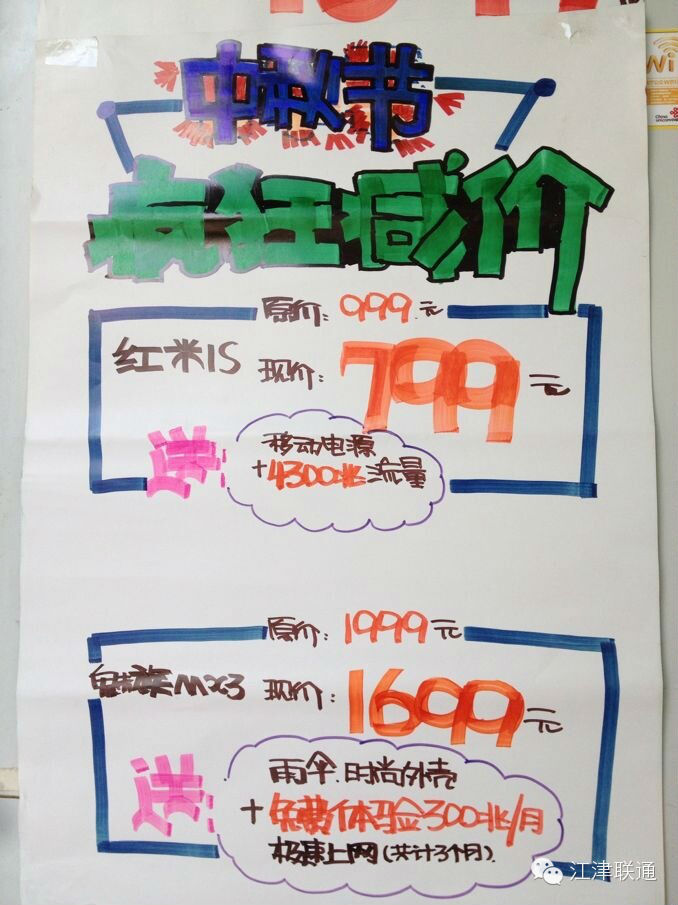 中秋节
疯狂减价
原价：999元
红米1S 现价：799元
送 移动电源
+4300兆流量
原价：1999元
魅族MX3 现价：1699元
送 雨伞.时尚外壳
+免费体验金300兆/月
极速上网（共计3个月）
Wi
China
unicom
江津联通